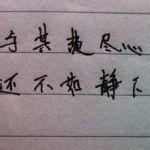 与其报尽心
还不如静下